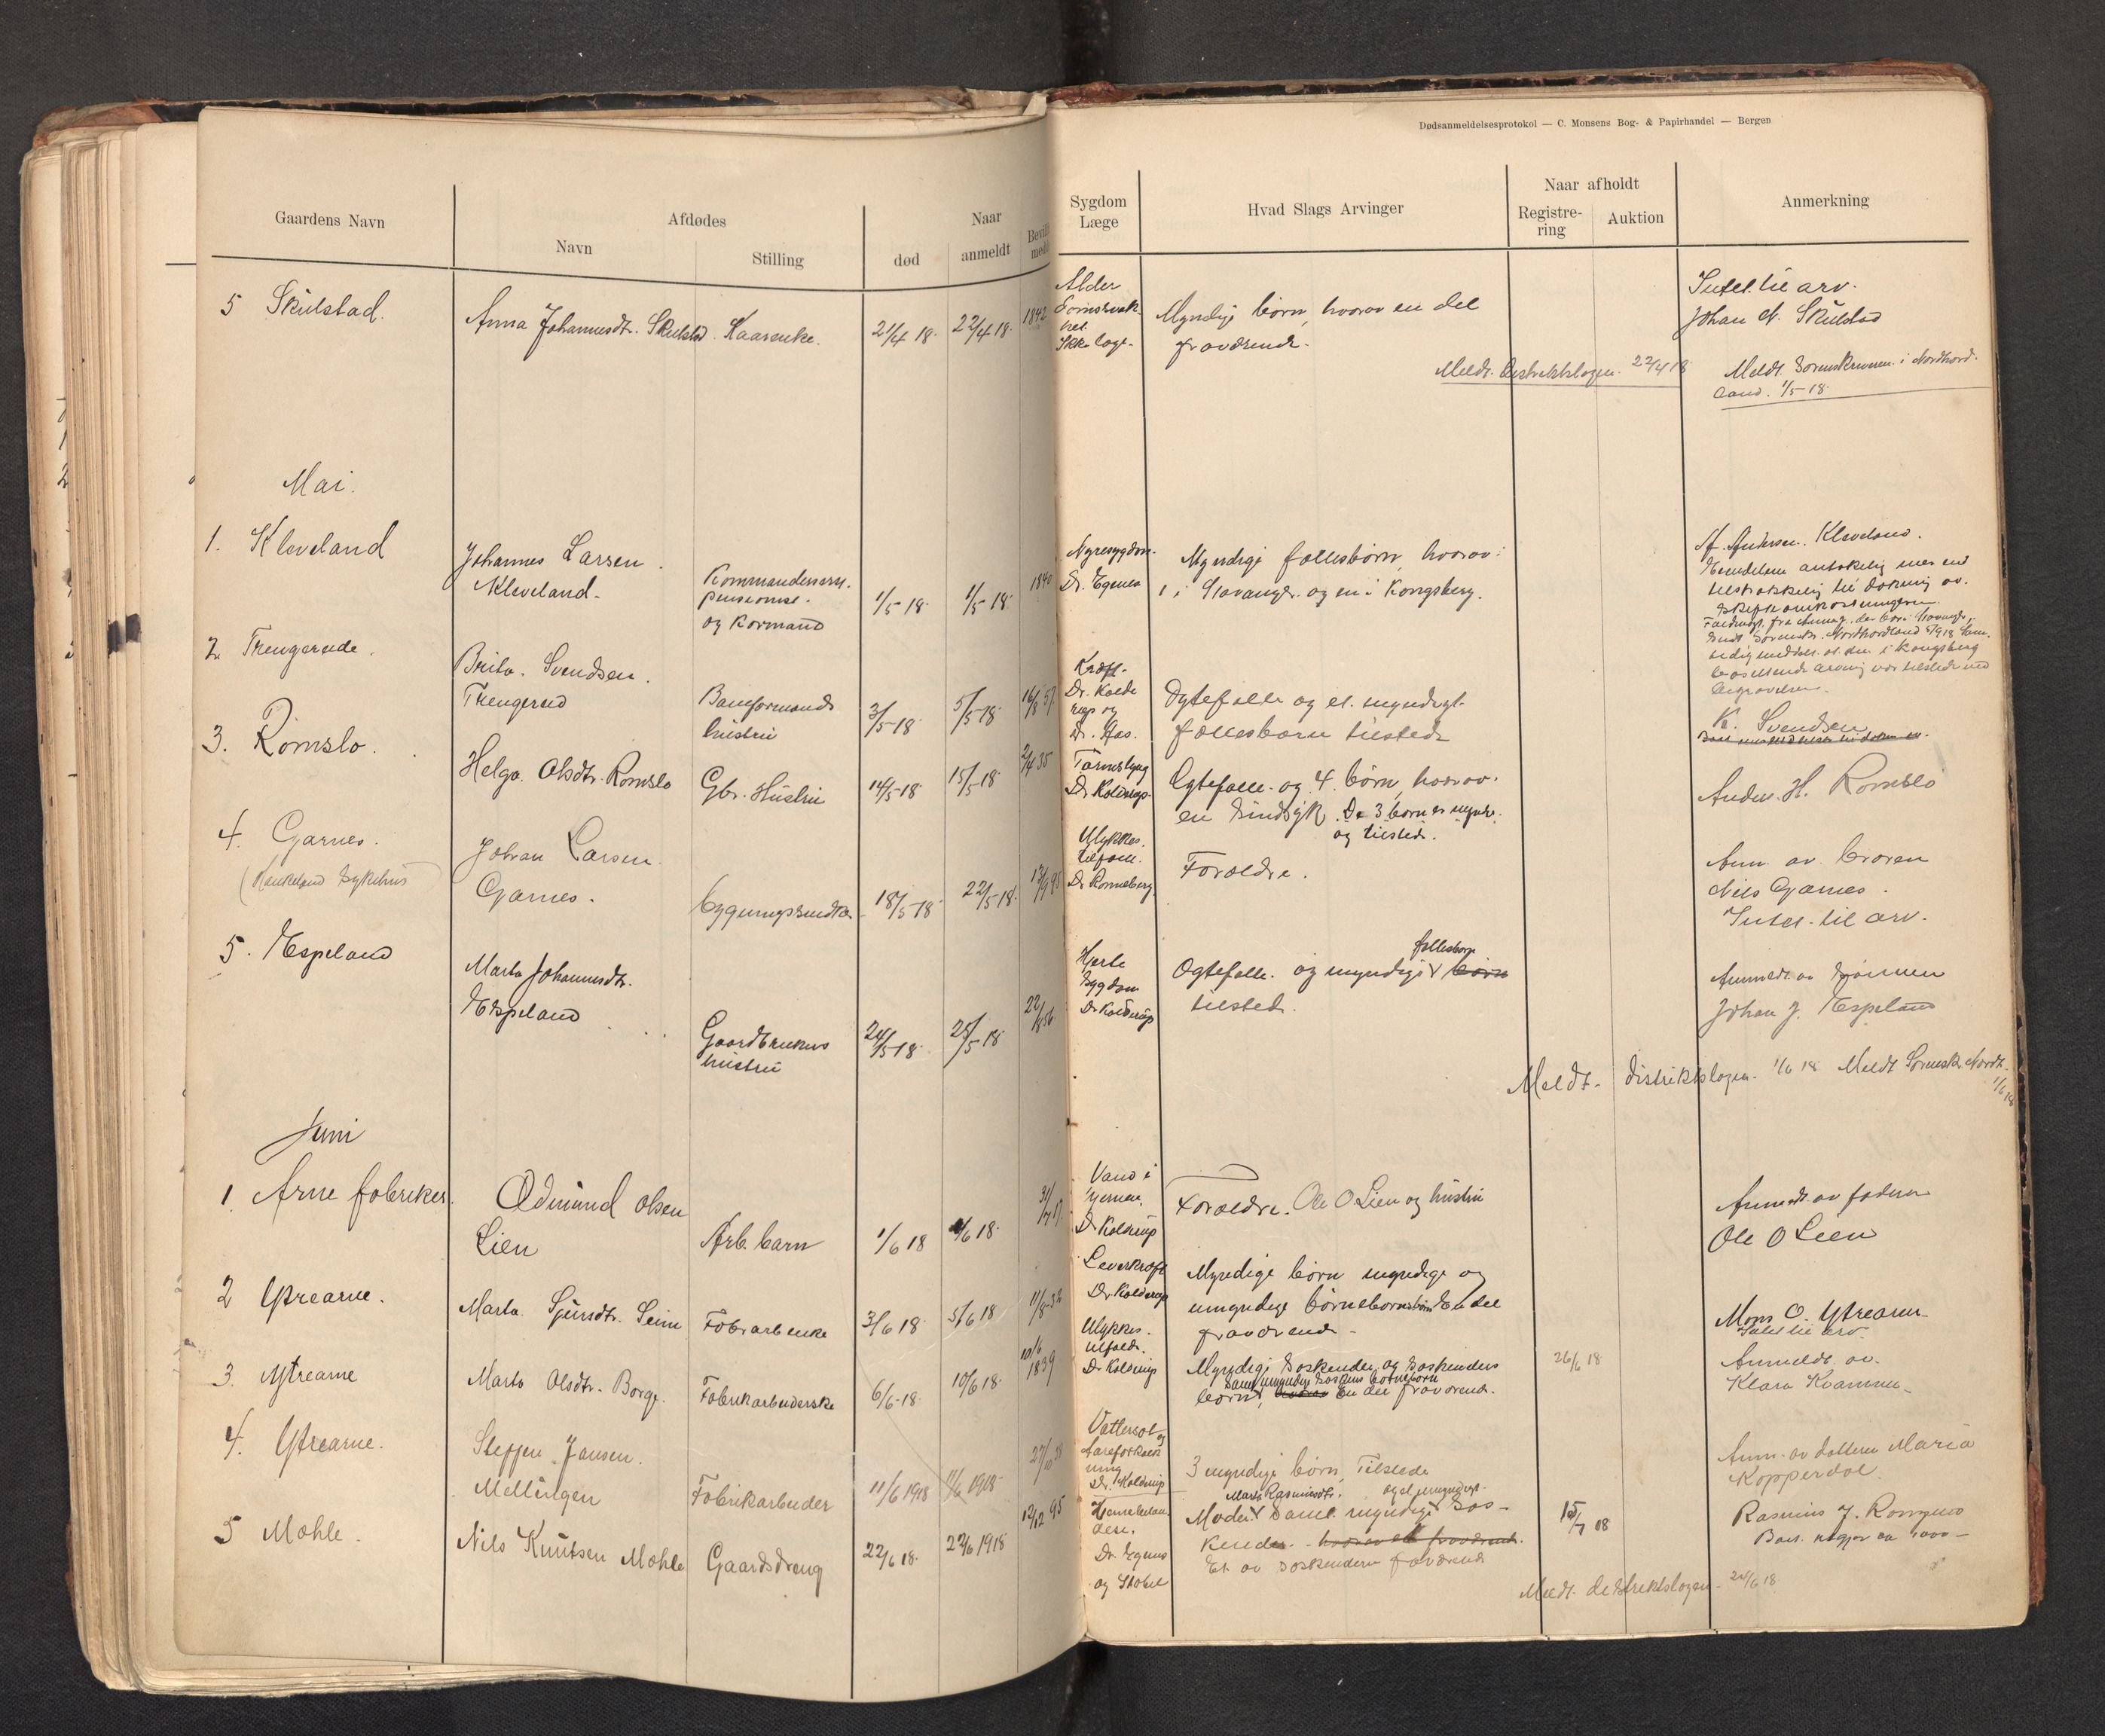 Dødsanmeldelsesprotokol — C. Monsens Bog- & Papirhandel — Bergen
Gaardens Navn
Afdødes
Navn
Stilling
Naar
død
anmeldt
Sygdom
Læge
Hvad Slags Arvinger
Naar afholdt
Registre-
ring
Auktion
Anmerkning
5 Skulstad.
Anna Johannesdt. Skulstad Kaarenke.
21/4 18. 22/4 18. 1842
Alder
Ikke læge.
Myndige børn, hvorav en del
fraværende.
Intet til arv.
Johan N. Skulstad
Meldt. distriktslægen. 22/4 18
Meldt Sorenskriveren i Nordhord-
land. 1/5-18.
Mai.
1. Kleveland
Johannes Larsen
Kleveland.
og kormand
1/5-18. 1/5-18. 1840
Nyresygdom.
Dr. Egenes
Myndige fællesbørn, hvorav
1 i Stavanger og en i Kongsberg.
Kleveland.
Eiendelene antakelig mer end
tilstrækkelig til dækning av
skifteomkostningerne.
begravelsen.
2 Trengereide.
Brita Svendsen.
Trengereid
Baneformands
hustru
3/5-18 5/5-18 16/8 57
Kræft.
Dr. Kolde
rup og
Dr. Aas.
Egtefælle og et myndigt
fællesbarn tilstede
K. Svendsen
3. Romslo.
Helga Olsdtr. Romslo
Gbr. Hustru
14/5-18 15/5-18 2/4 35
Tarmslyng
Dr Kolderup
Egtefælle og 4 børn, hvorav
en sindsyk. De 3 børn er mynd.
og tilstede.
Anders H. Romslo
4. Garnes.
(Haukeland Sykehus
Johan Larsen
Garnes.
18/5-18 22/5-18.
Ulykkes.
tilfælle.
Dr Ronneberg
Forældre.
Anm. av broren
Nils Garnes.
Intet til arv.
5. Espeland
Marta Johannesdt.
Espeland
Gaardbrukers
hustru
24/5-18 25/5-18 22/8 56
Hjerte
sygdom
Dr Kolderup
Egtefælle og myndige børn
fællesbørn
tilstede.
Anmeldt av sønnen
Johan J. Espeland
Meldt. distriktslægen. 1/6 18 Meldt Sorensk. Nordh.
1/6 18
Juni
1. Arne fabrikker.
Odmund Olsen
Lien
Arb. barn
1/6 18 4/6 18. 31/7 17
Vand i
hjernen.
Dr Kolderup
Forældre. Ole O Lien og hustru
Anmeldt av faderen
Ole O Lien
2 Ytrearne.
Marta Sjursdtr. Seim
Fabr arb enke
3/6 18 5/6 18 11/8-32
Leverkræft
Dr Kolderup
Myndige børn myndige og
umyndige børnebørn. En del
fraværende.
Mons O. Ytrearne
Intet til arv.
3. Ytrearne
Marta Olsdtr. Borge.
Fabrikarbeiderske
6/6-18. 10/6 18. 10/6 1839
Ulykkes.
tilfælde.
Dr Kolderup
Myndige søskende og søskendes
børn, hvorav En del fraværende.
26/6 18
Anmeldt av
Klara Kvamme
4. Ytrearne.
Steffen Jansen.
Mellingen
Fabrikarbeider
11/6 1918 11/6 1918
Vattersot og
aareforkalk
ning
Dr. Kolderup
3 myndige børn, Tilstede
Anm. av datteren Maria
Kopperdal.
5 Mohle.
Nils Knutsen Mohle
Gaardsdreng
22/6 18. 22/6 1918 12/12 95
Dr. Egenes
og Stabel
Marta Rasmusdt.
Moder samt myndige søs-
kende. hvorav et fraværende.
Et av søskenderne fraværende
15/7 18
Rasmus J. Romslo
Meldt. distriktslægen. 24/6 18